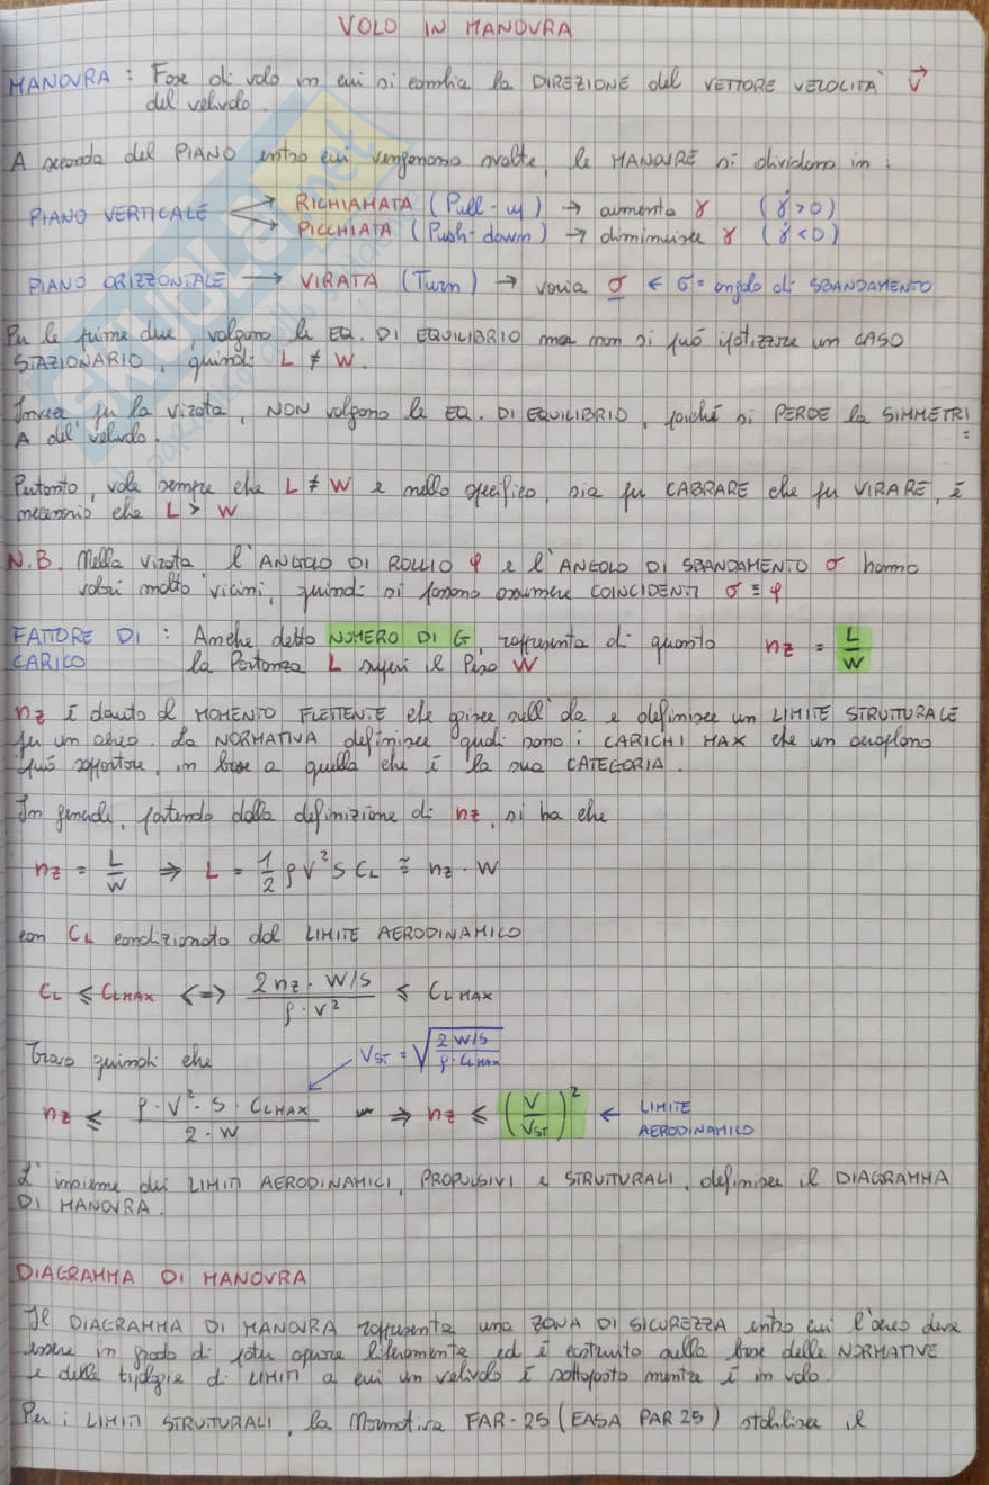 VOLO IN MANOVRA
MANOVRA : Fase di volo in cui si cambia la DIREZIONE del VETTORE VELOCITÀ V⃗
del velivolo.
A seconda del PIANO entro cui vengonono svolte, le MANOVRE si dividono in :
PIANO VERTICALE → RICHIAMATA (Pull-up) → aumenta γ (γ̇ > 0)
→ PICCHIATA (Push-down) → diminuisce γ (γ̇ < 0)
PIANO ORIZZONTALE → VIRATA (Turn) → varia σ ← σ = angolo di SBANDAMENTO
Per le prime due, valgono le EQ. DI EQUILIBRIO ma non si può ipotizzare un CASO
STAZIONARIO, quindi L ≠ W.
Invece per la virata, NON valgono le EQ. DI EQUILIBRIO, poiché si PERDE la SIMMETRI
A del velivolo.
Pertanto, vale sempre che L ≠ W e nello specifico, sia per CABRARE che per VIRARE, è
necessario che L > W
N.B. Nella virata l'ANGOLO DI ROLLIO φ e l'ANGOLO DI SBANDAMENTO σ hanno
valori molto vicini, quindi si possono assumere COINCIDENTI σ ≡ φ
FATTORE DI : Anche detto NUMERO DI G, rappresenta di quanto nz = L/W
CARICO la Portanza L superi il Peso W
nz è dovuto al MOMENTO FLETTENTE che agisce sull'ala e definisce un LIMITE STRUTTURALE
per un aereo. La NORMATIVA definisce quali sono i CARICHI MAX che un aeroplano
può sopportare, in base a quella che è la sua CATEGORIA.
In generale, partendo dalla definizione di nz, si ha che
nz = L/W ⇒ L = 1/2 ρV²S CL ≅ nz · W
con CL condizionato dal LIMITE AERODINAMICO
CL ≤ CLMAX <=> 2nz · W/S / ρ · V² ≤ CLMAX
Trovo quindi che VST = √(2 W/S / ρ · CLMAX)
nz ≤ ρ · V² · S · CLMAX / 2 · W ⇒ nz ≤ (V/VST)² ← LIMITE
AERODINAMICO
L'insieme dei LIMITI AERODINAMICI, PROPULSIVI e STRUTTURALI, definisce il DIAGRAMMA
DI MANOVRA.
DIAGRAMMA DI MANOVRA
Il DIAGRAMMA DI MANOVRA rappresenta una ZONA DI SICUREZZA entro cui l'aereo deve
essere in grado di poter operare liberamente ed è costruito sulla base delle NORMATIVE
e delle tipologie di LIMITI a cui un velivolo è sottoposto mentre è in volo.
Per i LIMITI STRUTTURALI, la Normativa FAR-25 (EASA PAR 25) stabilisce il